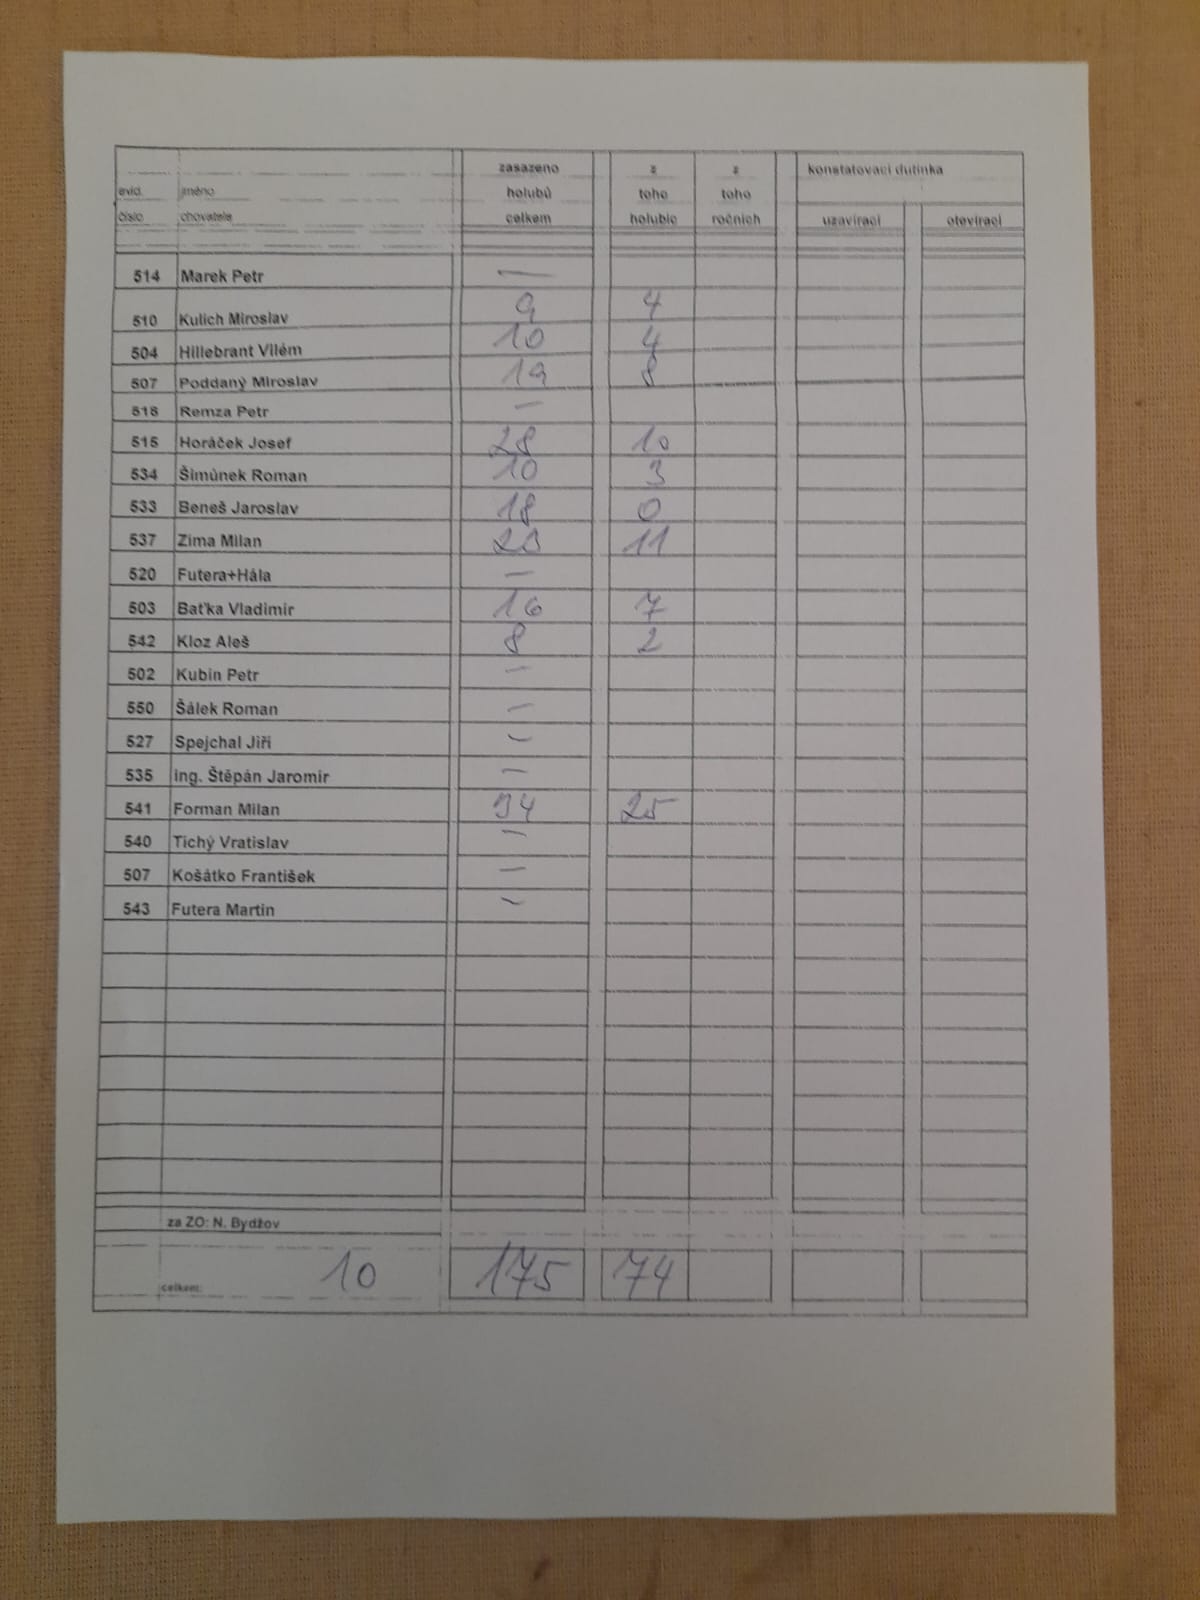 zasazeno z z konstatovací dutinka
evid. jméno holubů toho toho
číslo chovatele celkem holubic ročních uzavírací otevírací
514 Marek Petr —
510 Kulich Miroslav 9 4
504 Hillebrant Vilém 10 4
507 Poddaný Miroslav 19 8
518 Remza Petr —
515 Horáček Josef 28 10
534 Šimůnek Roman 10 3
533 Beneš Jaroslav 18 0
537 Zima Milan 23 11
520 Futera+Hála —
503 Baťka Vladimír 16 7
542 Kloz Aleš 8 2
502 Kubín Petr —
550 Šálek Roman —
527 Spejchal Jiří —
535 ing. Štěpán Jaromír —
541 Forman Milan 34 25
540 Tichý Vratislav —
507 Košátko František —
543 Futera Martin —
za ZO: N. Bydžov
celkem: 10 175 74